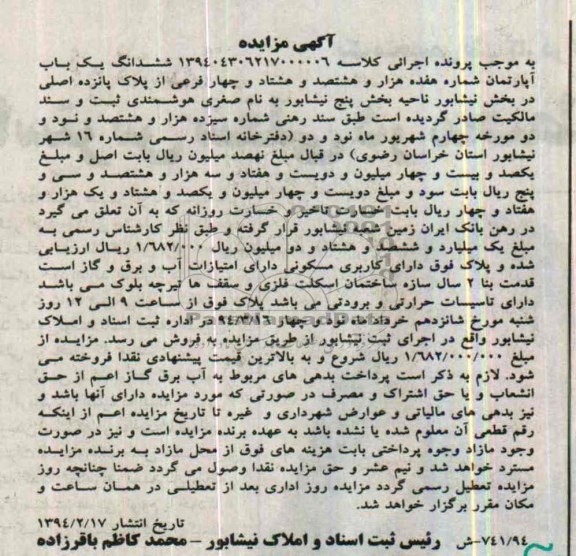 آگهی مزایده
به موجب پرونده اجرائی کلاسه ۱۳۹۴۰۴۳۰۶۲۱۷۰۰۰۰۰۶ ششدانگ یک باب
آپارتمان شماره هفده هزار و هشتصد و هشتاد و چهار فرعی از پلاک پانزده اصلی
در بخش نیشابور ناحیه بخش پنج نیشابور به نام صغری هوشمندی ثبت و سند
مالکیت صادر گردیده است طبق سند رهنی شماره سیزده هزار و هشتصد و نود و
دو مورخه چهارم شهریور ماه نود و دو (دفترخانه اسناد رسمی شماره ۱۶ شهر
نیشابور استان خراسان رضوی) در قبال مبلغ نهصد میلیون ریال بابت اصل و مبلغ
یکصد و بیست و چهار میلیون و دویست و هفتاد و سه هزار و هشتصد و سی و
پنج ریال بابت سود و مبلغ دویست و چهار میلیون و یکصد و هشتاد و یک هزار و
هفتاد و چهار ریال بابت خسارت تاخیر و خسارت روزانه که به آن تعلق می گیرد
در رهن بانک ایران زمین شعبه نیشابور قرار گرفته و طبق نظر کارشناس رسمی به
مبلغ یک میلیارد و ششصد و هشتاد و دو میلیون ریال ۱/۶۸۲/۰۰۰ ریال ارزیابی
شده و پلاک فوق دارای کاربری مسکونی دارای امتیازات آب و برق و گاز است
قدمت بنا ۲ سال سازه ساختمان اسکلت فلزی و سقف ها تیرچه بلوک می باشد
دارای تاسیسات حرارتی و برودتی می باشد پلاک فوق از ساعت ۹ الی ۱۲ روز
شنبه مورخ شانزدهم خردادماه نود و چهار ۹۴/۳/۱۶ در اداره ثبت اسناد و املاک
نیشابور واقع در اجرای ثبت نیشابور از طریق مزایده به فروش می رسد. مزایده از
مبلغ ۱/۶۸۲/۰۰۰/۰۰۰ ریال شروع و به بالاترین قیمت پیشنهادی نقدا فروخته می
شود. لازم به ذکر است پرداخت بدهی های مربوط به آب برق گاز اعم از حق
انشعاب و یا حق اشتراک و مصرف در صورتی که مورد مزایده دارای آنها باشد و
نیز بدهی های مالیاتی و عوارض شهرداری و غیره تا تاریخ مزایده اعم از اینکه
رقم قطعی آن معلوم شده یا نشده باشد به عهده برنده مزایده است و نیز در صورت
وجود مازاد وجوه پرداختی بابت هزینه های فوق از محل مازاد به برنده مزایده
مسترد خواهد شد و نیم عشر و حق مزایده نقدا وصول می گردد ضمنا چنانچه روز
مزایده تعطیل رسمی گردد مزایده روز اداری بعد از تعطیلی در همان ساعت و
مکان مقرر برگزار خواهد شد.
تاریخ انتشار ۱۳۹۴/۲/۱۷
۷۴۱/۹۴-ش رئیس ثبت اسناد و املاک نیشابور – محمد کاظم باقرزاده